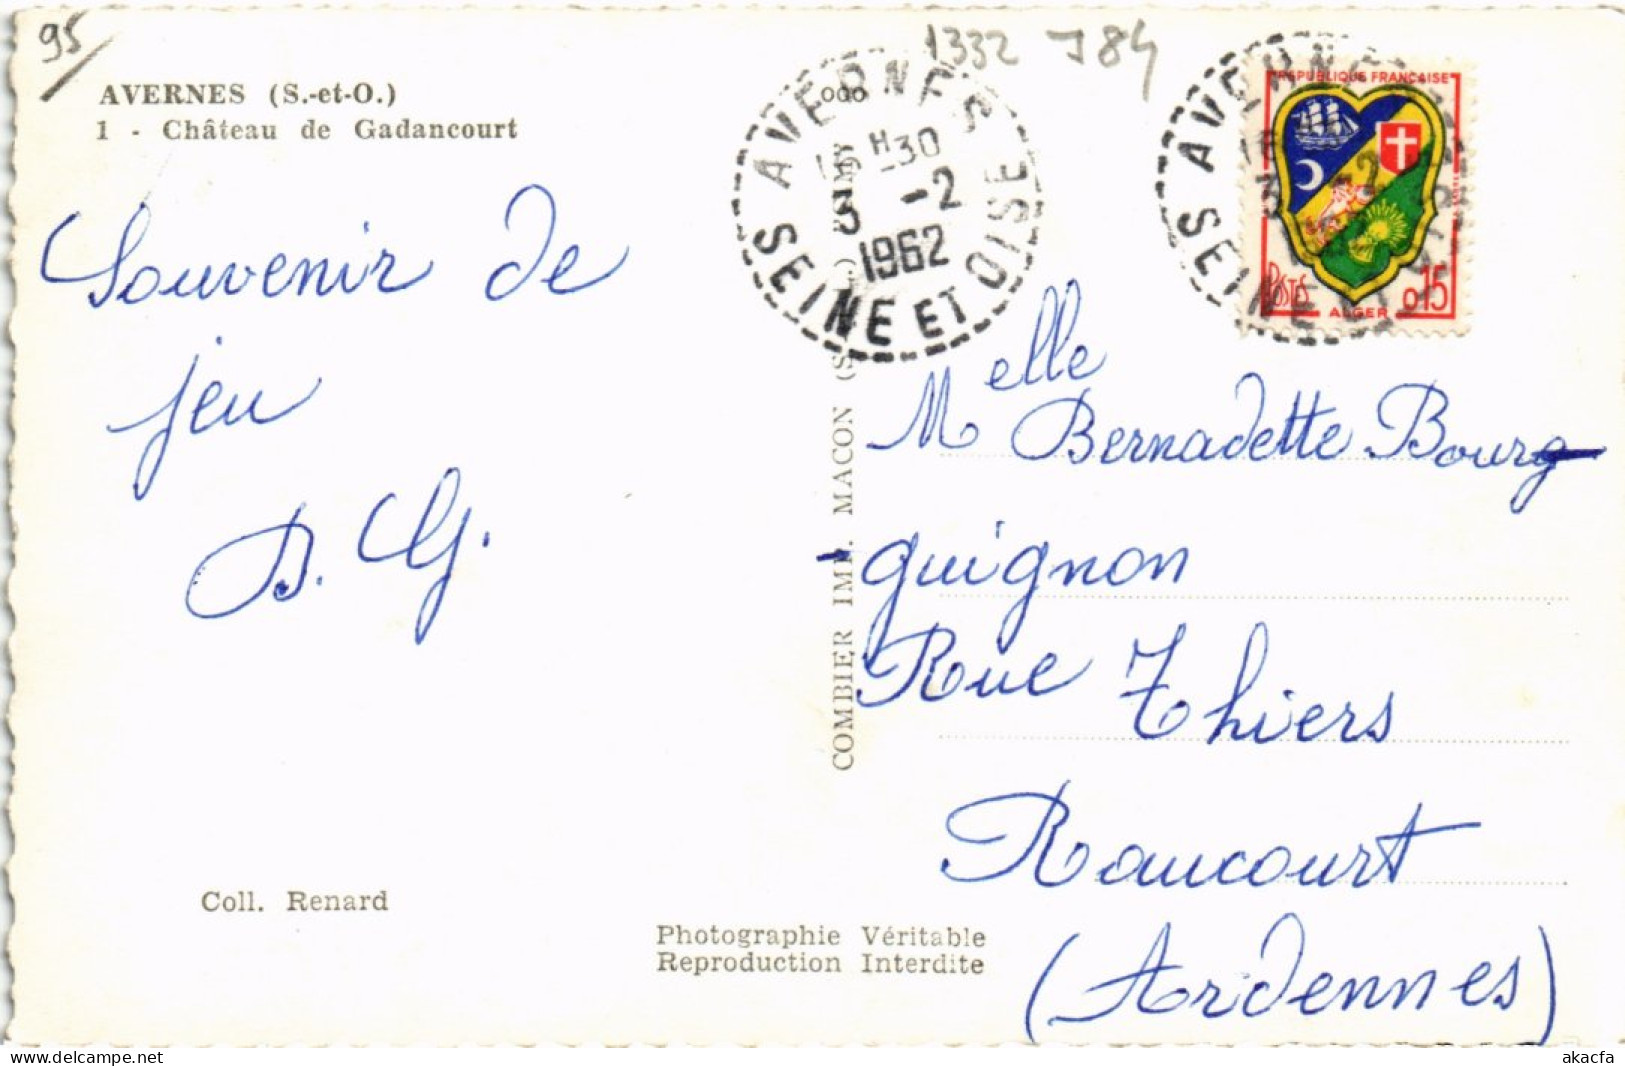 95
1332 J84
AVERNES (S.-et-O.)
1 - Château de Gadancourt
AVERNES
H-30
3 -2
1962
SEINE ET OISE
AVERNES
3
SEINE ET OISE
REPUBLIQUE FRANÇAISE
POSTES
0,15
ALGER
Souvenir de
jeu
D. G.
Melle
Bernadette Bourg-
-guignon
Rue Thiers
Raucourt
(Ardennes)
COMBIER IMP. MACON
Coll. Renard
Photographie Véritable
Reproduction Interdite
akacfa